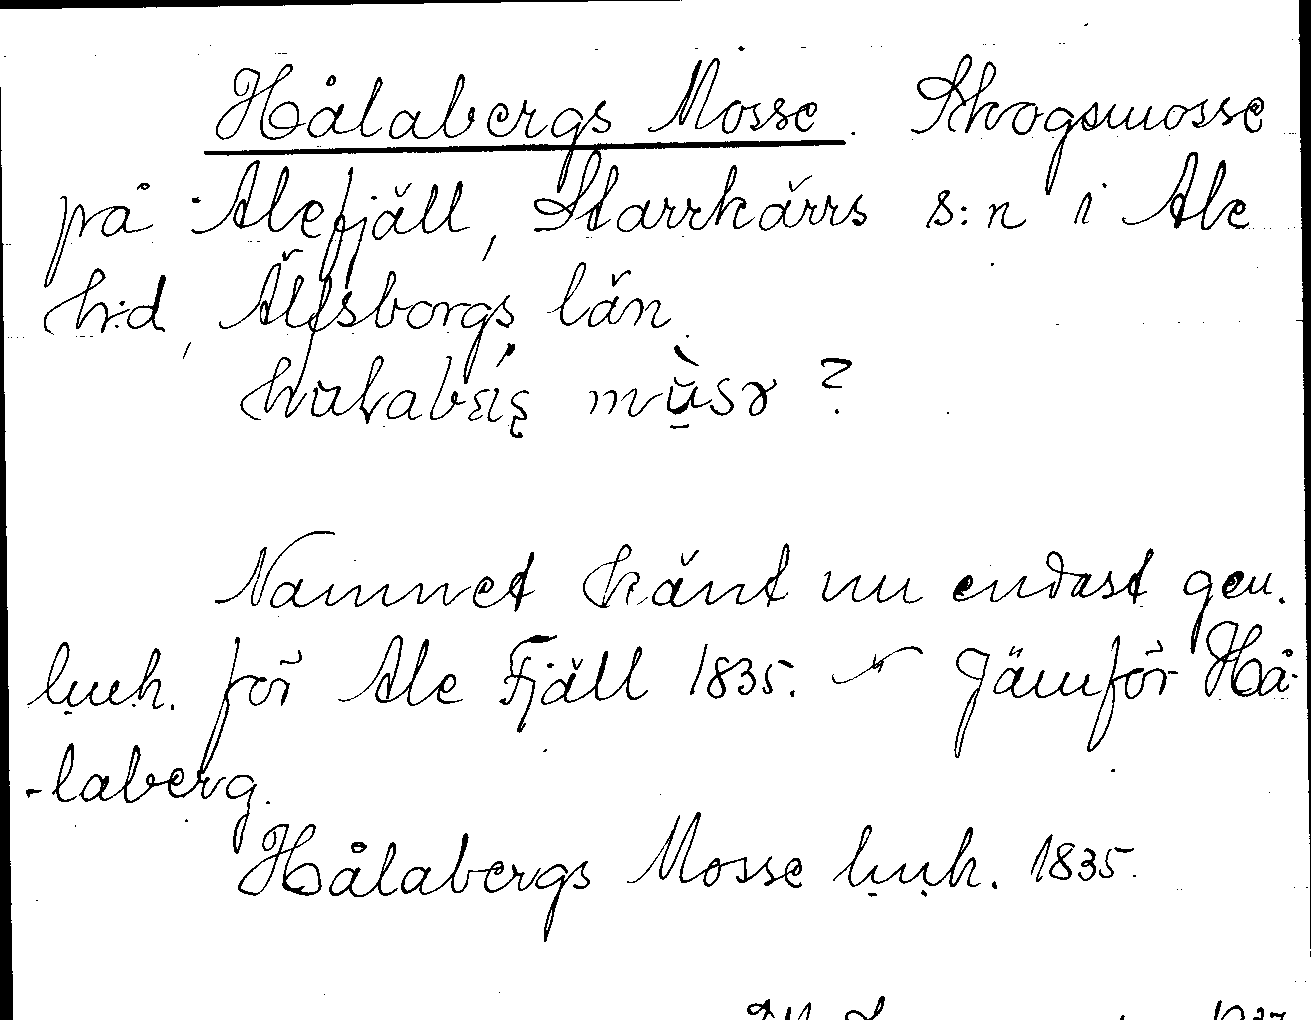 Hålabergs Mosse. Skogsmosse
på Alefjäll, Starrkärrs s:n i Ale
h:d, Älfsborgs län.
?
Namnet känt nu endast gen.
lmk. för Ale Fjäll 1835. Jämför Hå-
-laberg.
Hålabergs Mosse lmk. 1835.